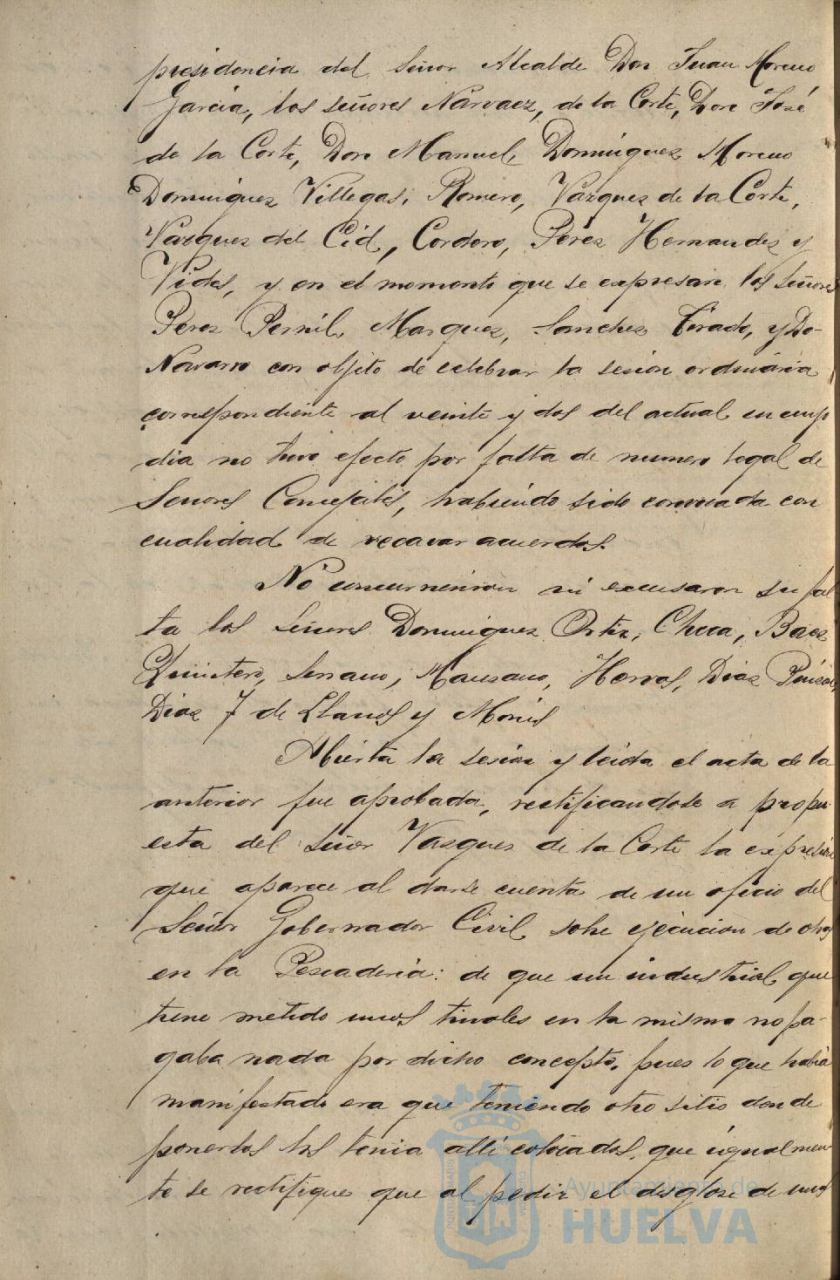 presidencia del Señor Alcalde Don Juan Moreno
García, los señores Narvaez, de la Corte, Don José
de la Corte, Don Manuel, Dominguez Moreno
Dominguez Villegas, Romero, Vazquez de la Corte,
Vazquez del Cid, Cordero, Pérez Hernandez y
Vides, y en el momento que se expresan los Señores
Pérez Pernil, Marquez, Sanchez Tirado, y
Navarro con objeto de celebrar la sesion ordinaria
correspondiente al veinte y dos del actual en cuyo
dia no tuvo efecto por falta de numero legal de
Señores Concejales, habiendo sido convocada con
cualidad de recavar acuerdos.
No concurrieron ni excusaron su fal
ta los Señores Dominguez Ortiz, Checa, Baez
Quintero, Serrano, Manzano, Hervas, Diaz
Diaz F de Llanos y
Abierta la sesion y leida el acta de la
anterior fue aprobada, rectificandose a propu
esta del Señor Vazquez de la Corte la expresión
que aparece al darse cuenta de un oficio del
Señor Gobernador Civil sobre ejecucion de obras
en la Pescaderia: de que un industrial que
tiene metido unos tinales en la misma no pa-
gaba nada por dicho concepto, pues lo que habia
manifestado era que teniendo otro sitio donde
ponerlos los tenia allí colocados, que igualmen
te se rectifique que al pedir el desglose de unos
Ayuntamiento de
HUELVA